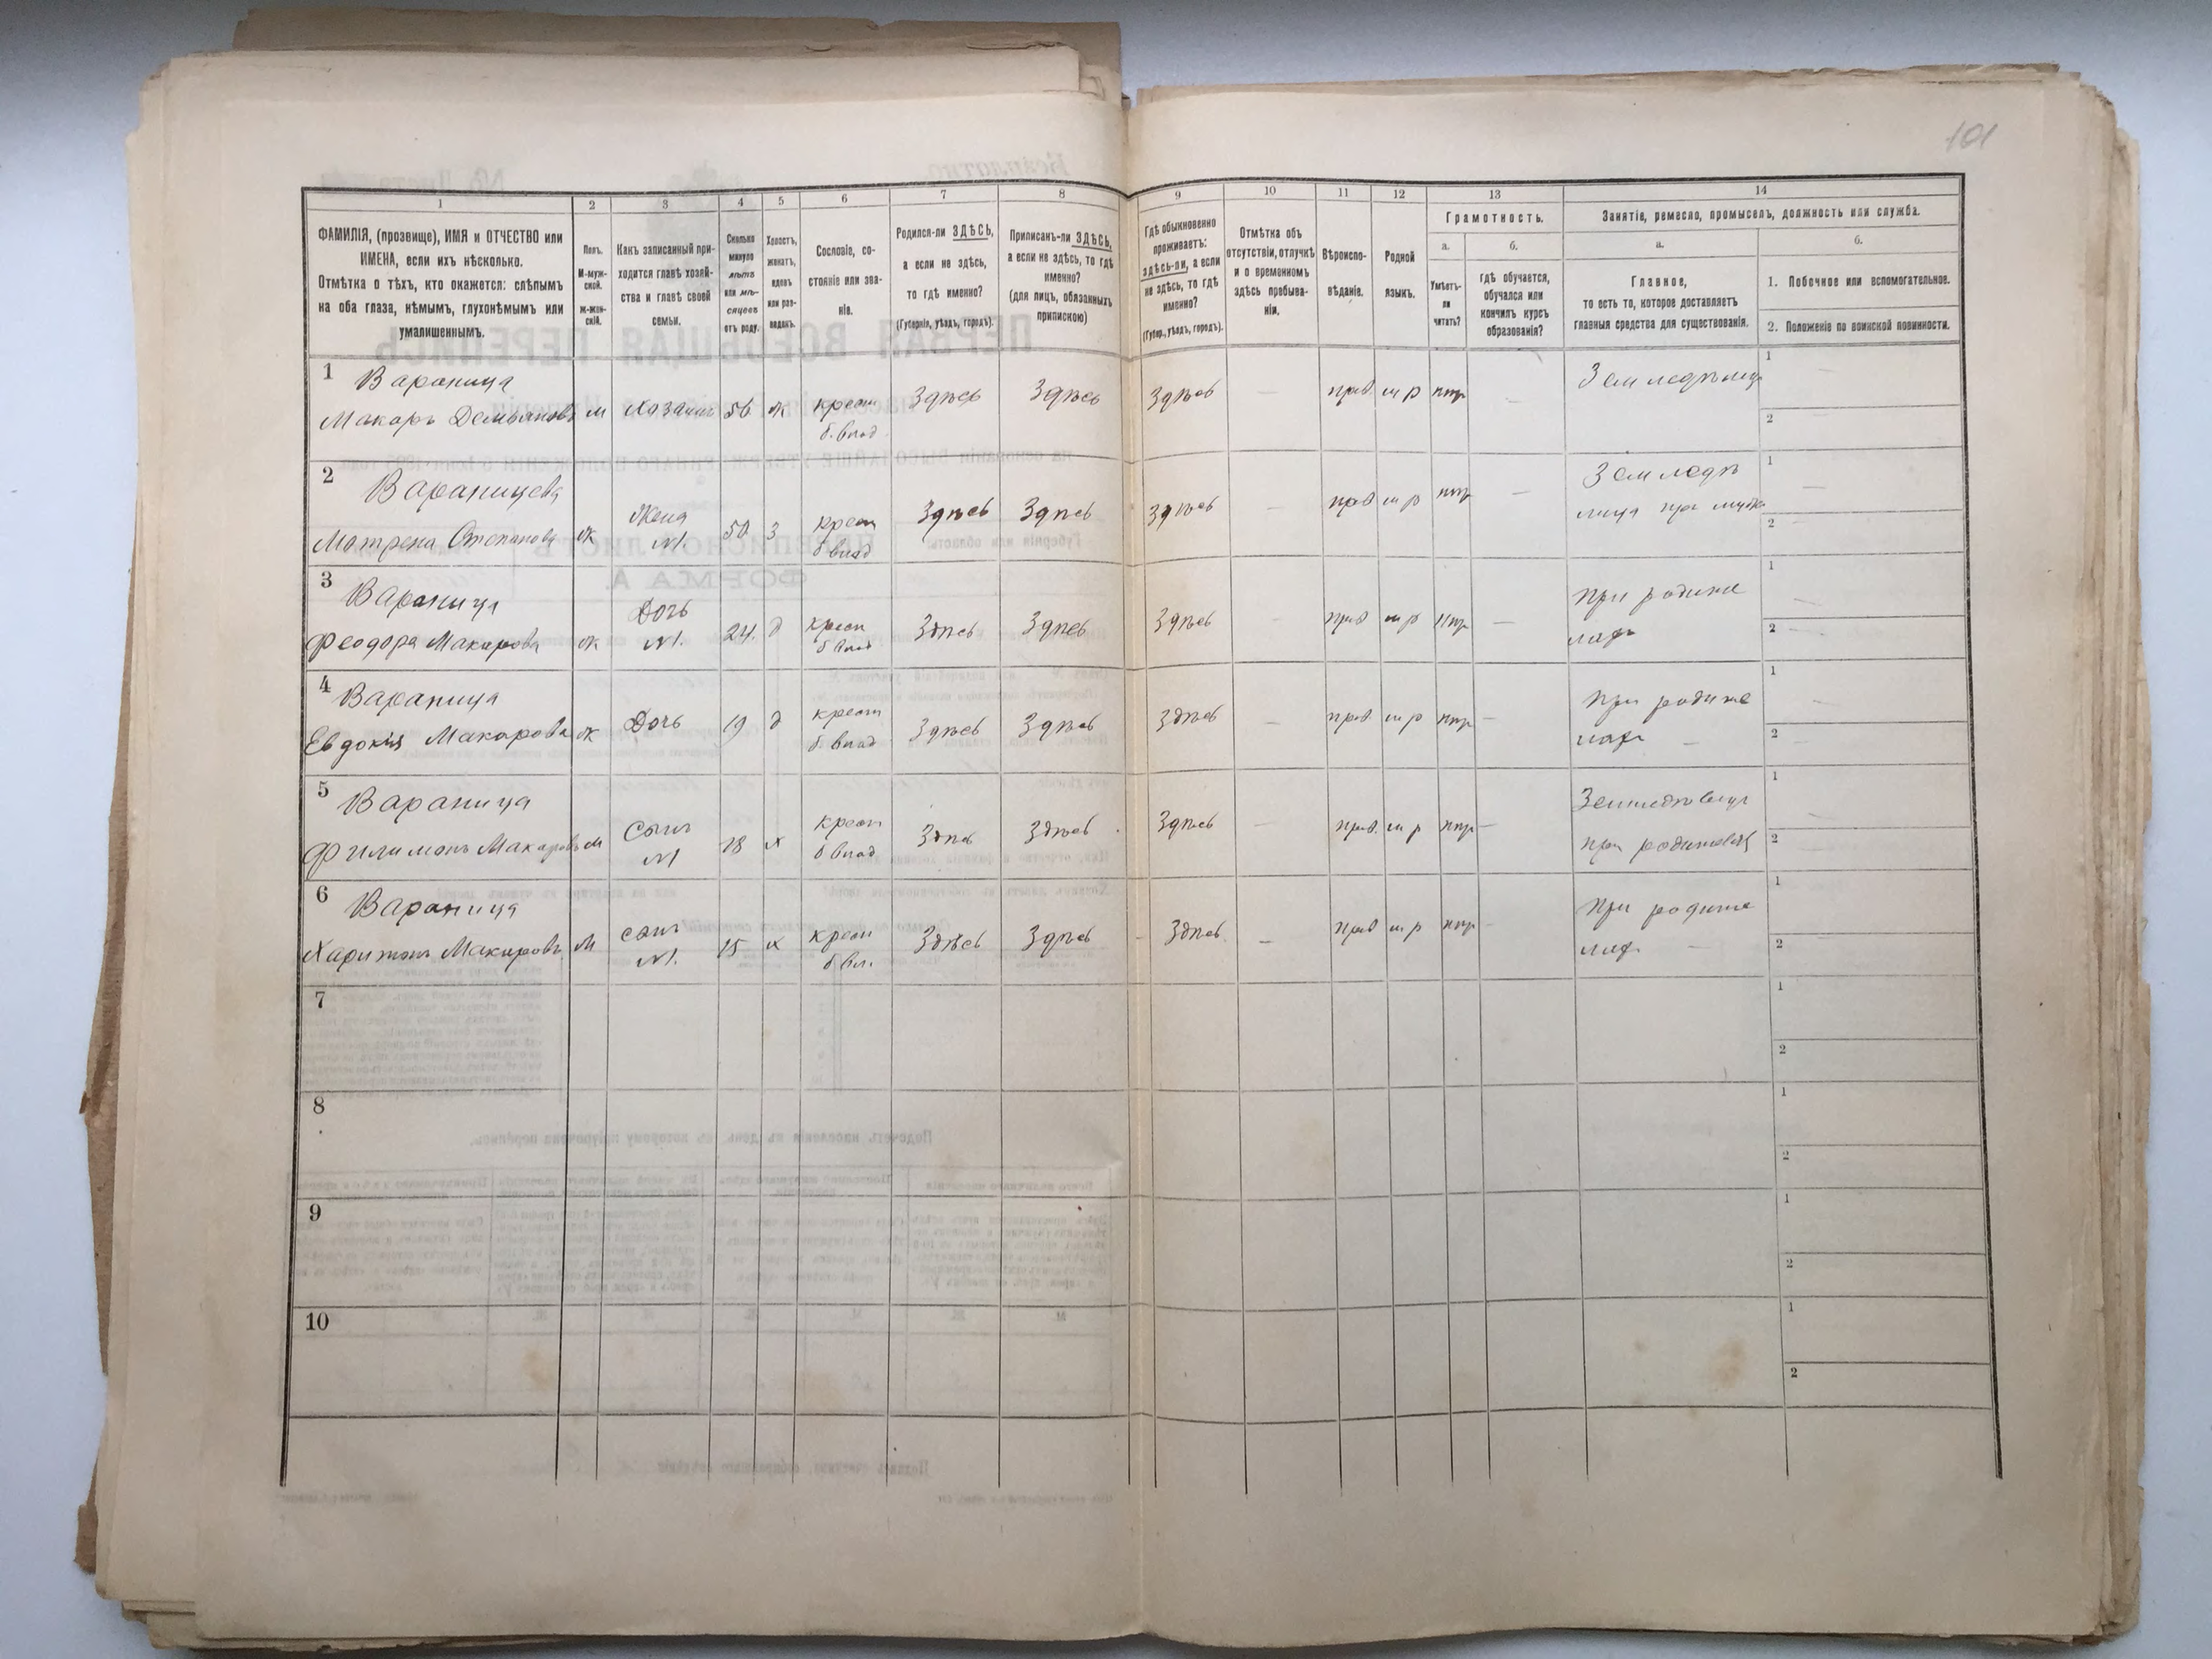 101
1
2
3
4
5
6
7
8
9
10
11
12
13
14
ФАМИЛІЯ, (прозвище), ИМЯ и ОТЧЕСТВО или
ИМЕНА, если ихъ нѣсколько.
Отмѣтка о тѣхъ, кто окажется: слѣпымъ
на оба глаза, нѣмымъ, глухонѣмымъ или
умалишеннымъ.
Полъ.
М-муж-
ской.
Ж-жен-
скій.
Какъ записанный при-
ходится главѣ хозяй-
ства и главѣ своей
семьи.
Сколько
минуло
лѣтъ
или мѣ-
сяцевъ
отъ роду.
Холостъ,
женатъ,
вдовъ
или раз-
веденъ.
Сословіе, со-
стояніе или зва-
ніе.
Родился-ли ЗДѢСЬ,
а если не здѣсь,
то гдѣ именно?
(Губернія, уѣздъ, городъ).
Приписанъ-ли ЗДѢСЬ,
а если не здѣсь, то гдѣ
именно?
(для лицъ, обязанныхъ
припискою)
Гдѣ обыкновенно
проживаетъ:
здѣсь-ли, а если
не здѣсь, то гдѣ
именно?
(Губер., уѣздъ, городъ).
Отмѣтка объ
отсутствіи, отлучкѣ
и о временномъ
здѣсь пребыва-
ніи.
Вѣроиспо-
вѣданіе.
Родной
языкъ.
Грамотность.
а.
б.
Умѣетъ-
ли
читать?
гдѣ обучается,
обучался или
кончилъ курсъ
образованія?
Занятіе, ремесло, промыселъ, должность или служба.
а.
б.
Главное,
то есть то, которое доставляетъ
главныя средства для существованія.
1. Побочное или вспомогательное.
2. Положеніе по воинской повинности.
1 Вараница
Макаръ Демьяновъ м Хозяинъ 56 ж крест Здѣсь Здѣсь Здѣсь — прав. м р — Земледѣлец 1 —
б. влад. 2
2 Вараницева Земледѣ 1 —
Матрена Степанова ж Жена 50 з крест Здѣсь Здѣсь Здѣсь — прав м р —
М. б влад 2
3 Вараница При родите 1 —
Феодора Макарова ж Дочь 24. д крест Здѣсь Здѣсь Здѣсь прав м р — ляхъ
М. б влад 2 —
4 Вараница При родите 1
Евдокія Макарова ж Дочь 19 д крест Здѣсь Здѣсь Здѣсь — прав. м р — ляхъ —
б. влад 2 —
5 Вараница 1
Филимонъ Макаровъ м Сынъ 18 х крест Здѣсь Здѣсь Здѣсь — прав. м р — при
М б влад 2 —
6 Вараница При родите 1
Харитонъ Макаровъ м сынъ 15 х крест Здѣсь Здѣсь — Здѣсь. — прав м р — ляхъ —
М. б вл. 2
7
1
2
8
1
2
9
1
2
10
1
2